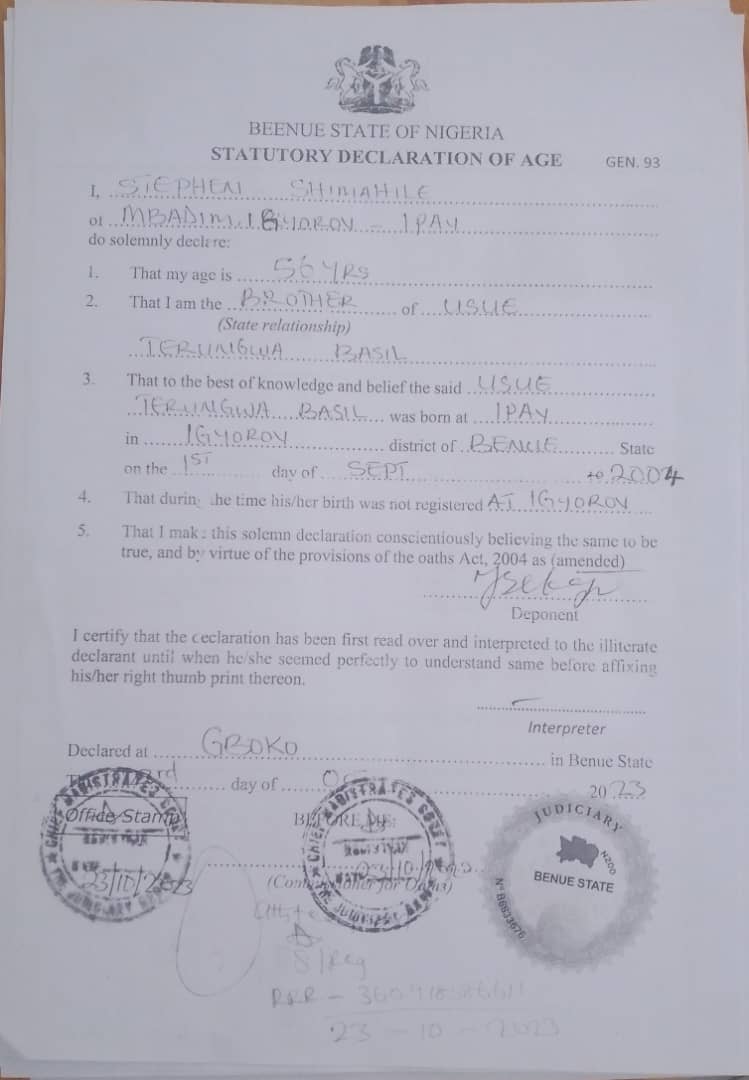 BEENUE STATE OF NIGERIA
STATUTORY DECLARATION OF AGE GEN. 93
I, STEPHEN SHIMAHILE
of MBADIM, IGYOROV - IPAV
do solemnly declare:
1. That my age is 56 YRS
2. That I am the BROTHER of USUE
(State relationship)
TERUNGWA BASIL
3. That to the best of knowledge and belief the said USUE
TERUNGWA BASIL was born at IPAV
in IGYOROV district of BENUE State
on the 1ST day of SEPT 2004
4. That during the time his/her birth was not registered AT IGYOROV
5. That I make this solemn declaration conscientiously believing the same to be
true, and by virtue of the provisions of the oaths Act, 2004 as (amended)
Deponent
I certify that the declaration has been first read over and interpreted to the illiterate
declarant until when he/she seemed perfectly to understand same before affixing
his/her right thumb print thereon.
Interpreter
Declared at GBOKO in Benue State
day of 2023
Office Stamp BEFORE ME:
CHIEF MAGISTRATES COURT
REGISTRAR
23/10/2023
CHIEF MAGISTRATES COURT
REGISTRAR
DATE 23/10/2023
(Commissioner for Oaths)
JUDICIARY
N200
BENUE STATE
Nº B6933676
S/Reg
RRR -
23 - 10 - 2023